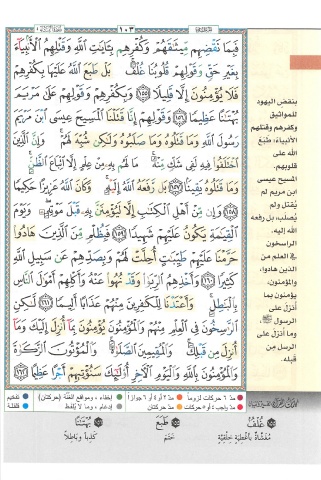 ١٠٣
فَبِمَا نَقْضِهِم مِّيثَٰقَهُمْ وَكُفْرِهِم بِـَٔايَٰتِ ٱللَّهِ وَقَتْلِهِمُ ٱلْأَنۢبِيَآءَ
بِغَيْرِ حَقٍّ وَقَوْلِهِمْ قُلُوبُنَا غُلْفٌۢ بَلْ طَبَعَ ٱللَّهُ عَلَيْهَا بِكُفْرِهِمْ
فَلَا يُؤْمِنُونَ إِلَّا قَلِيلًا ١٥٥ وَبِكُفْرِهِمْ وَقَوْلِهِمْ عَلَىٰ مَرْيَمَ
بُهْتَٰنًا عَظِيمًا ١٥٦ وَقَوْلِهِمْ إِنَّا قَتَلْنَا ٱلْمَسِيحَ عِيسَى ٱبْنَ مَرْيَمَ
رَسُولَ ٱللَّهِ وَمَا قَتَلُوهُ وَمَا صَلَبُوهُ وَلَٰكِن شُبِّهَ لَهُمْ ۚ وَإِنَّ ٱلَّذِينَ
ٱخْتَلَفُوا۟ فِيهِ لَفِى شَكٍّ مِّنْهُ ۚ مَا لَهُم بِهِۦ مِنْ عِلْمٍ إِلَّا ٱتِّبَاعَ ٱلظَّنِّ ۚ
وَمَا قَتَلُوهُ يَقِينًۢا ١٥٧ بَل رَّفَعَهُ ٱللَّهُ إِلَيْهِ ۚ وَكَانَ ٱللَّهُ عَزِيزًا حَكِيمًا
١٥٨ وَإِن مِّنْ أَهْلِ ٱلْكِتَٰبِ إِلَّا لَيُؤْمِنَنَّ بِهِۦ قَبْلَ مَوْتِهِۦ ۖ وَيَوْمَ
ٱلْقِيَٰمَةِ يَكُونُ عَلَيْهِمْ شَهِيدًا ١٥٩ فَبِظُلْمٍ مِّنَ ٱلَّذِينَ هَادُوا۟
حَرَّمْنَا عَلَيْهِمْ طَيِّبَٰتٍ أُحِلَّتْ لَهُمْ وَبِصَدِّهِمْ عَن سَبِيلِ ٱللَّهِ
كَثِيرًا ١٦٠ وَأَخْذِهِمُ ٱلرِّبَوٰا۟ وَقَدْ نُهُوا۟ عَنْهُ وَأَكْلِهِمْ أَمْوَٰلَ ٱلنَّاسِ
بِٱلْبَٰطِلِ ۚ وَأَعْتَدْنَا لِلْكَٰفِرِينَ مِنْهُمْ عَذَابًا أَلِيمًا ١٦١ لَّٰكِنِ
ٱلرَّٰسِخُونَ فِى ٱلْعِلْمِ مِنْهُمْ وَٱلْمُؤْمِنُونَ يُؤْمِنُونَ بِمَآ أُنزِلَ إِلَيْكَ وَمَآ
أُنزِلَ مِن قَبْلِكَ ۚ وَٱلْمُقِيمِينَ ٱلصَّلَوٰةَ ۚ وَٱلْمُؤْتُونَ ٱلزَّكَوٰةَ
وَٱلْمُؤْمِنُونَ بِٱللَّهِ وَٱلْيَوْمِ ٱلْءَاخِرِ أُو۟لَٰٓئِكَ سَنُؤْتِيهِمْ أَجْرًا عَظِيمًا ١٦٢
بنقض اليهود
للمواثيق
وكفرهم وقتلهم
الأنبياء، طبع
الله على
قلوبهم.
المسيح عيسى
ابن مريم لم
يُقتل ولم
يُصلب، بل رفعه
الله إليه.
الراسخون
في العلم من
الذين هادوا،
والمؤمنون،
يؤمنون بما
أنزل على
الرسول ﷺ،
وما أنزل على
الرسل من
قبله.
مدّ ٦ حركات لزوماً مدّ ٢ أو ٤ أو ٦ جوازاً إخفاء، ومواقع الغُنَّة (حركتان) تفخيم
مدّ واجب ٤ أو ٥ حركات مدّ حركتان إدغام، وما لا يُلفَظ قلقلة
غُلْفٌ طَبَعَ بُهْتَٰنًا
مُغَشَّاةٌ بأغطِيةٍ خِلْقِيَّة خَتَمَ كَذِباً وباطِلاً